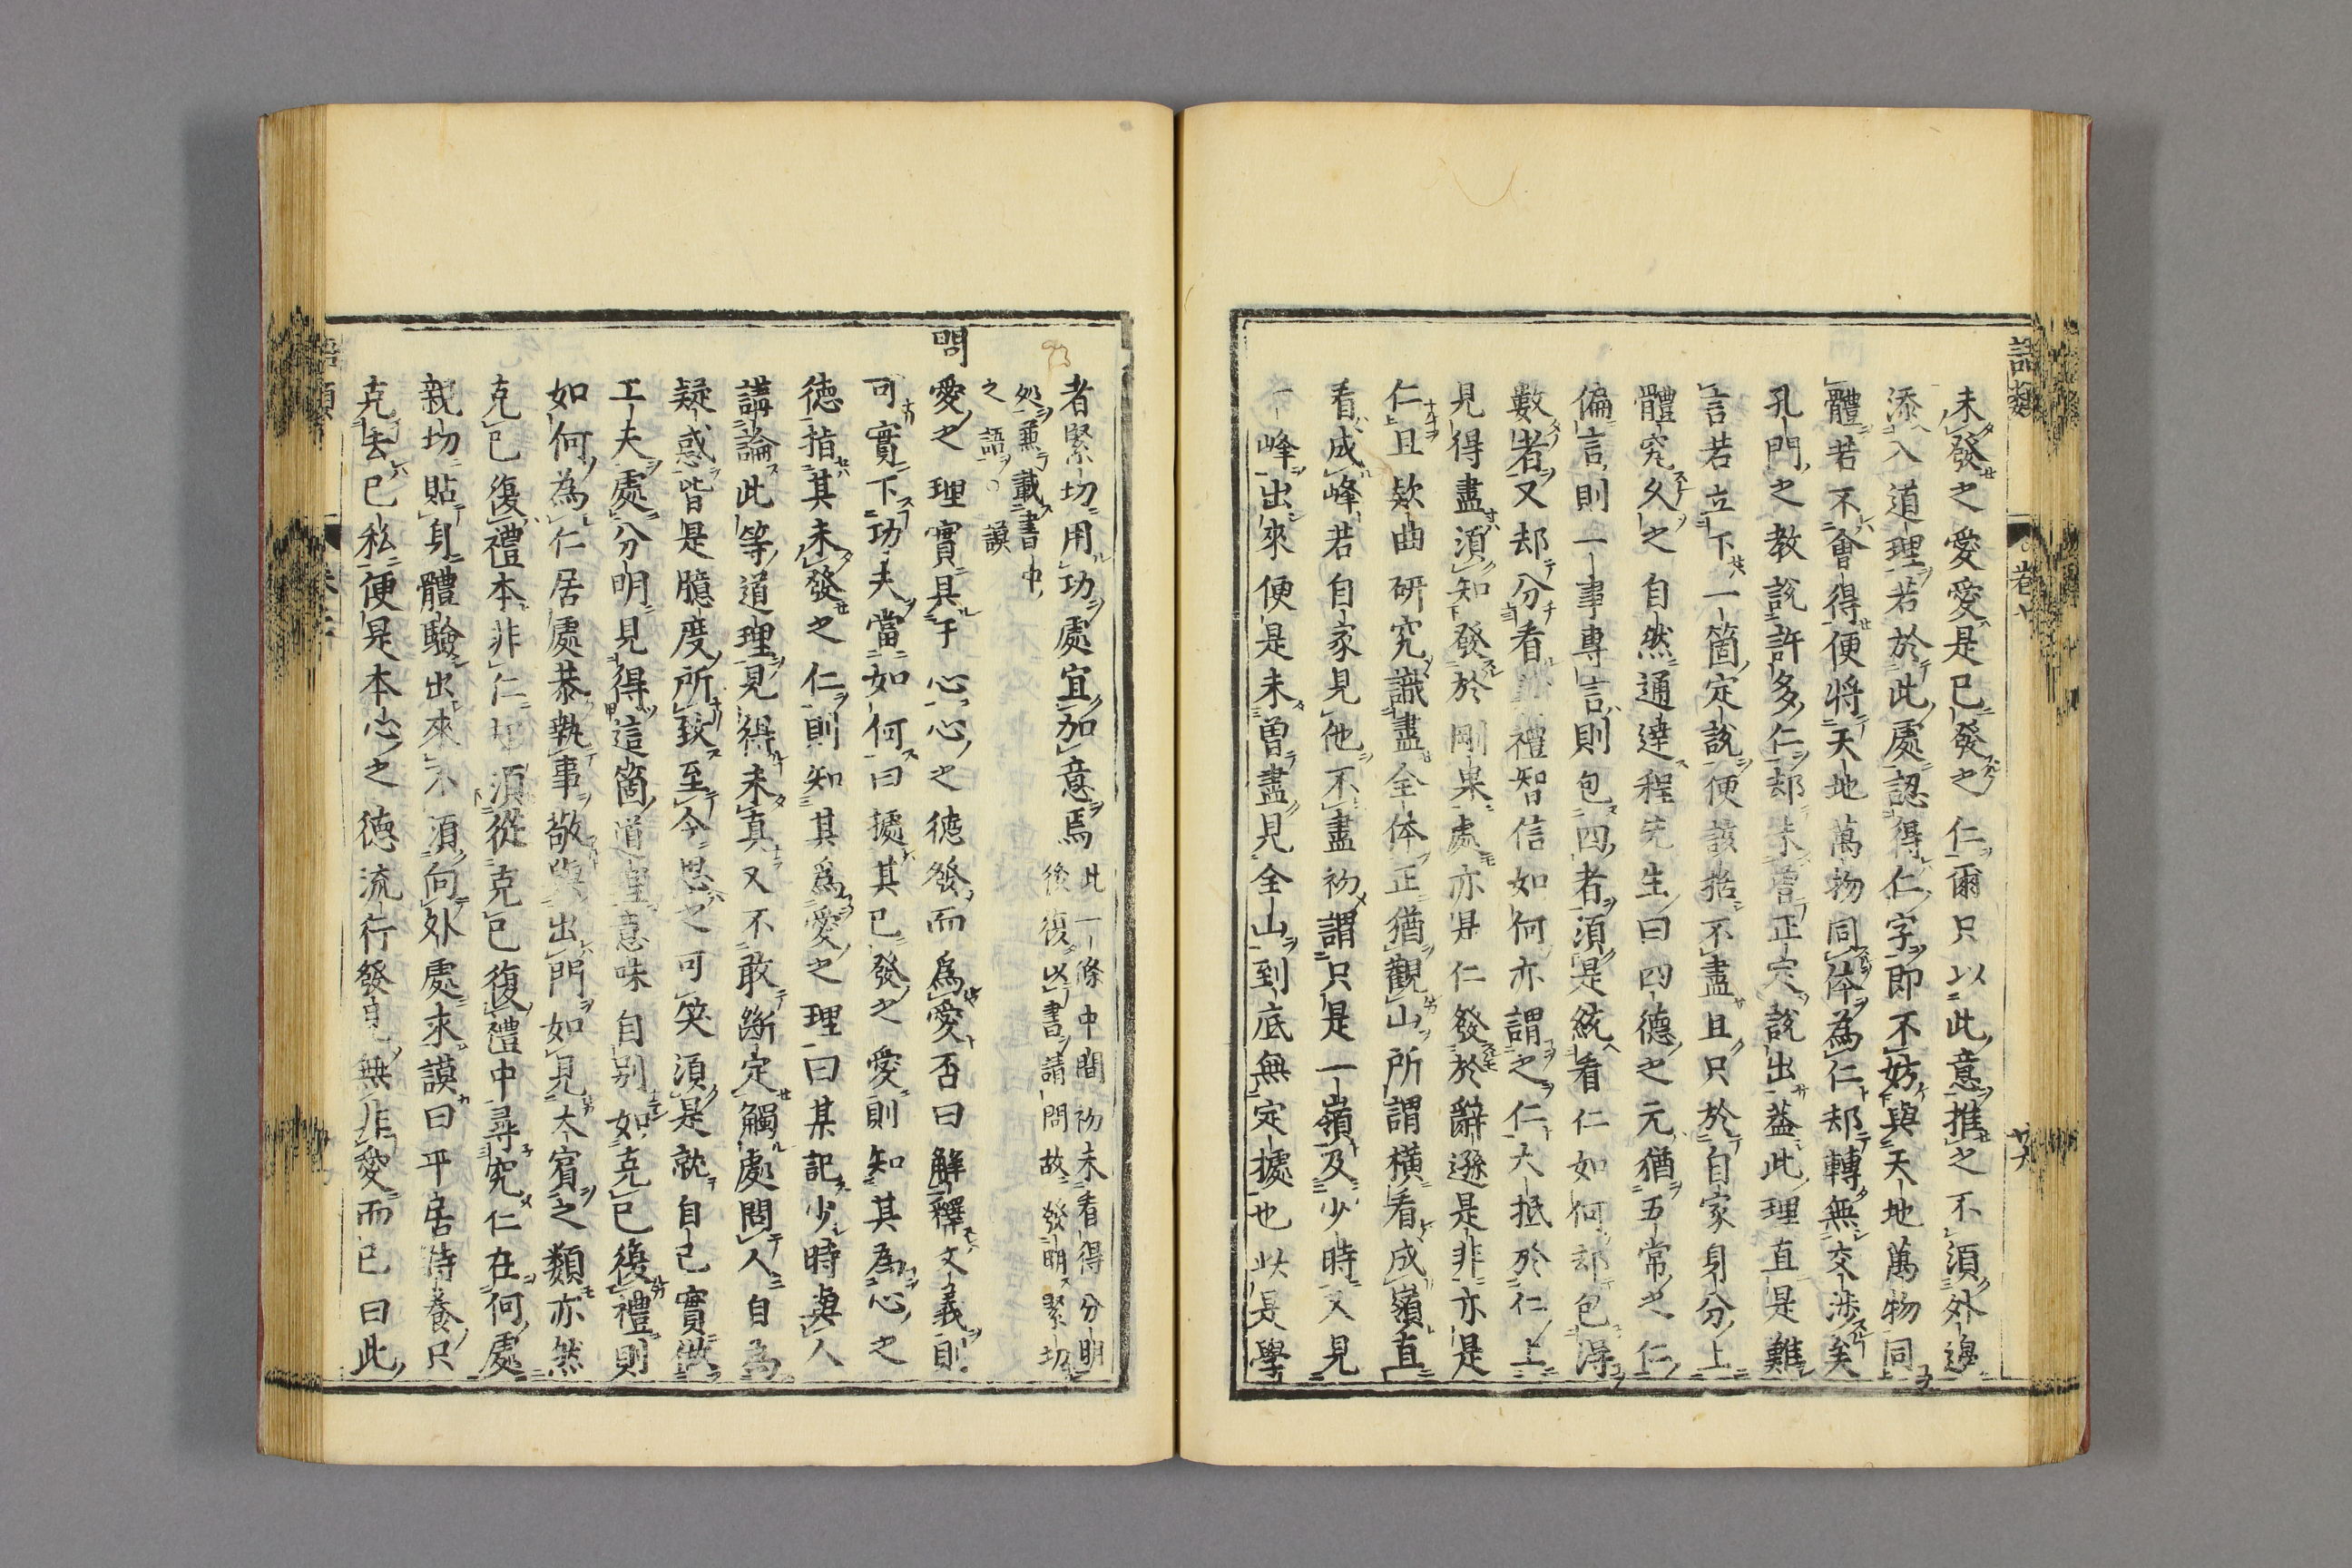 語類
卷六
廿六
未發之愛愛是已發之仁爾只以此意推之不須外邊
添入道理若於此處認得仁字即不妨與天地萬物同
體若不會得便將天地萬物同体為仁却轉無交渉矣
孔門之教說許多仁却未曽正定說出蓋此理直是難
言若立下一箇定說便該括不盡且只於自家身分上
體究久之自然通達程先生曰四德之元猶五常之仁
偏言則一事專言則包四者須是統看仁如何却包得
數者又却分看義禮智信如何亦謂之仁大抵於仁上
見得盡須知發於剛果處亦是仁發於辭遜是非亦是
仁且欵曲研究識盡全体正猶觀山所謂橫看成嶺直
看成峰若自家見他不盡初謂只是一嶺及少時又見
一峰出來便是未曽盡見全山到底無定據也此是學
者緊切用功處宜加意焉
此一條中間初未看得分明
後復以書請問故發明緊切
処兼載書中
之語○謨
問
愛之理實具于心心之德發而爲愛否曰解釋文義則
可實下功夫當如何曰據其已發之愛則知其為心之
德指其未發之仁則知其爲愛之理曰某記少時與人
講論此等道理見得未真又不敢斷定觸處問人自爲
疑惑皆是臆度所致至今思之可笑須是就自己實做
工夫處分明見得這箇道理意味自别如克己復禮則
如何為仁居處恭執事敬與出門如見大賓之類亦然
克己復禮本非仁却須從克己復禮中尋究仁在何處
親切貼身體驗出來不須向外處求謨曰平居持養只
克去己私便是本心之德流行發見無非愛而已曰此
語類